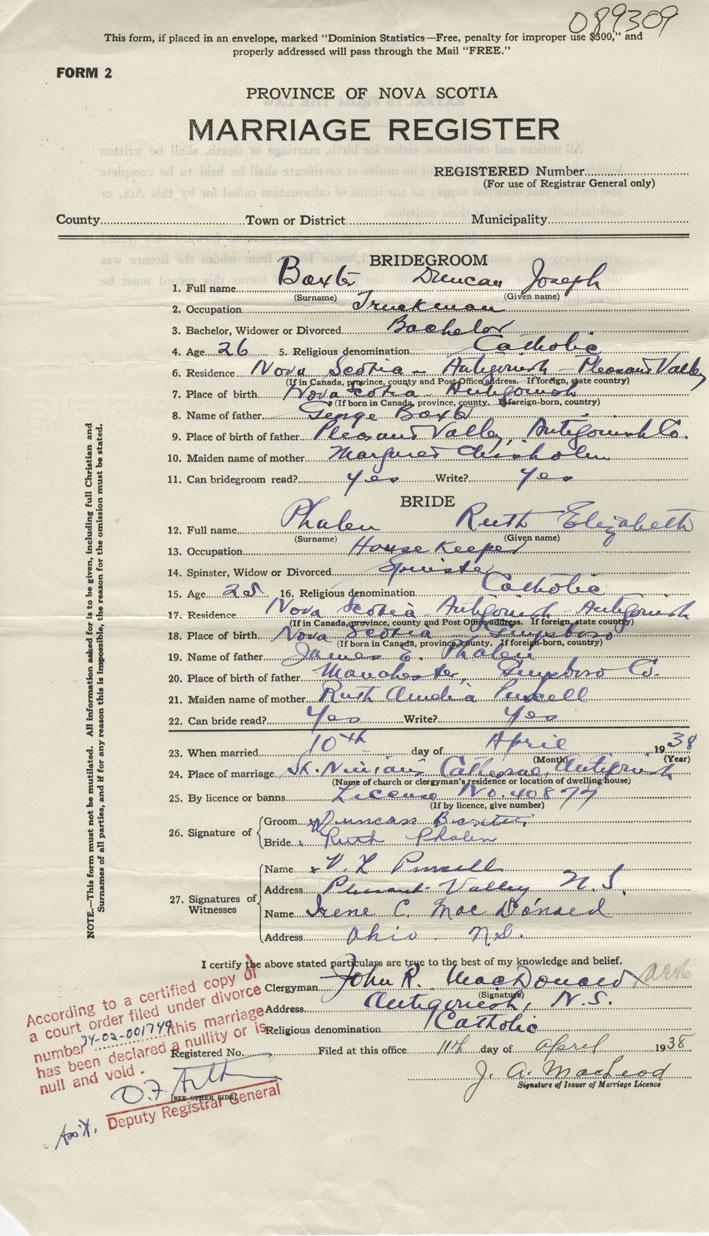 089309
This form, if placed in an envelope, marked "Dominion Statistics—Free, penalty for improper use $300," and
properly addressed will pass through the Mail "FREE."
FORM 2
PROVINCE OF NOVA SCOTIA
MARRIAGE REGISTER
REGISTERED Number
(For use of Registrar General only)
County Town or District Municipality
BRIDEGROOM
1. Full name Baxter Duncan Joseph
(Surname) (Given name)
2. Occupation Truckman
3. Bachelor, Widower or Divorced Bachelor
4. Age 26 5. Religious denomination Catholic
6. Residence Nova Scotia - Antigonish - Pleasant Valley
(If in Canada, province, county and Post Office address. If foreign, state country)
7. Place of birth Nova Scotia - Antigonish
(If born in Canada, province, county. If foreign-born, country)
8. Name of father George Baxter
9. Place of birth of father Pleasant Valley, Antigonish Co.
10. Maiden name of mother Margaret Chisholm
11. Can bridegroom read? Yes Write? Yes
BRIDE
12. Full name Phalen Ruth Elizabeth
(Surname) (Given name)
13. Occupation House Keeper
14. Spinster, Widow or Divorced Spinster
15. Age 25 16. Religious denomination Catholic
17. Residence Nova Scotia Antigonish - Antigonish
(If in Canada, province, county and Post Office address. If foreign, state country)
18. Place of birth Nova Scotia Guysboro
(If born in Canada, province, county. If foreign-born, country)
19. Name of father James E. Phalen
20. Place of birth of father Manchester, Guysboro Co.
21. Maiden name of mother Ruth Amelia Purcell
22. Can bride read? Yes Write? Yes
23. When married 10th day of April 1938
(Month) (Year)
24. Place of marriage St. Ninian's Cathedral, Antigonish
(Name of church or clergyman's residence or location of dwelling house)
25. By licence or banns License No. 40877
(If by licence, give number)
26. Signature of Groom Duncan Baxter
Bride Ruth Phalen
27. Signatures of Witnesses
Name Purcell
Address Pleasant Valley N.S.
Name Irene C. MacDonald
Address Ohio N.S.
NOTE.—This form must not be mutilated. All Information asked for is to be given, including full Christian and
Surnames of all parties, and if for any reason this is impossible, the reason for the omission must be stated.
I certify the above stated particulars are true to the best of my knowledge and belief.
Clergyman John R. MacDonald
(Signature)
Address Antigonish, N.S.
Religious denomination Catholic
According to a certified copy of
a court order filed under divorce
number 74-02-001749 this marriage
has been declared a nullity or is
null and void.
Deputy Registrar General
Registered No. Filed at this office 11th day of April 1938
(SEE OTHER SIDE)
J. A. MacLeod
Signature of Issuer of Marriage Licence